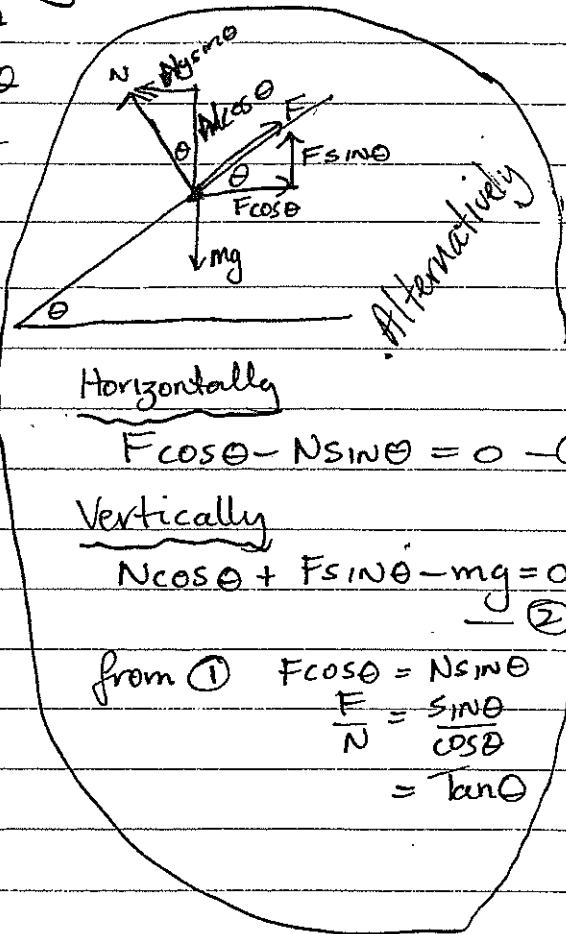 N
Nsinθ
Ncosθ
F
θ
Fsinθ
θ
Fcosθ
mg
θ
Alternatively
Horizontally
Fcosθ - Nsinθ = 0 -
Vertically
Ncosθ + Fsinθ - mg = 0
— ②
from ① Fcosθ = Nsinθ
F/N = sinθ/cosθ
= Tanθ